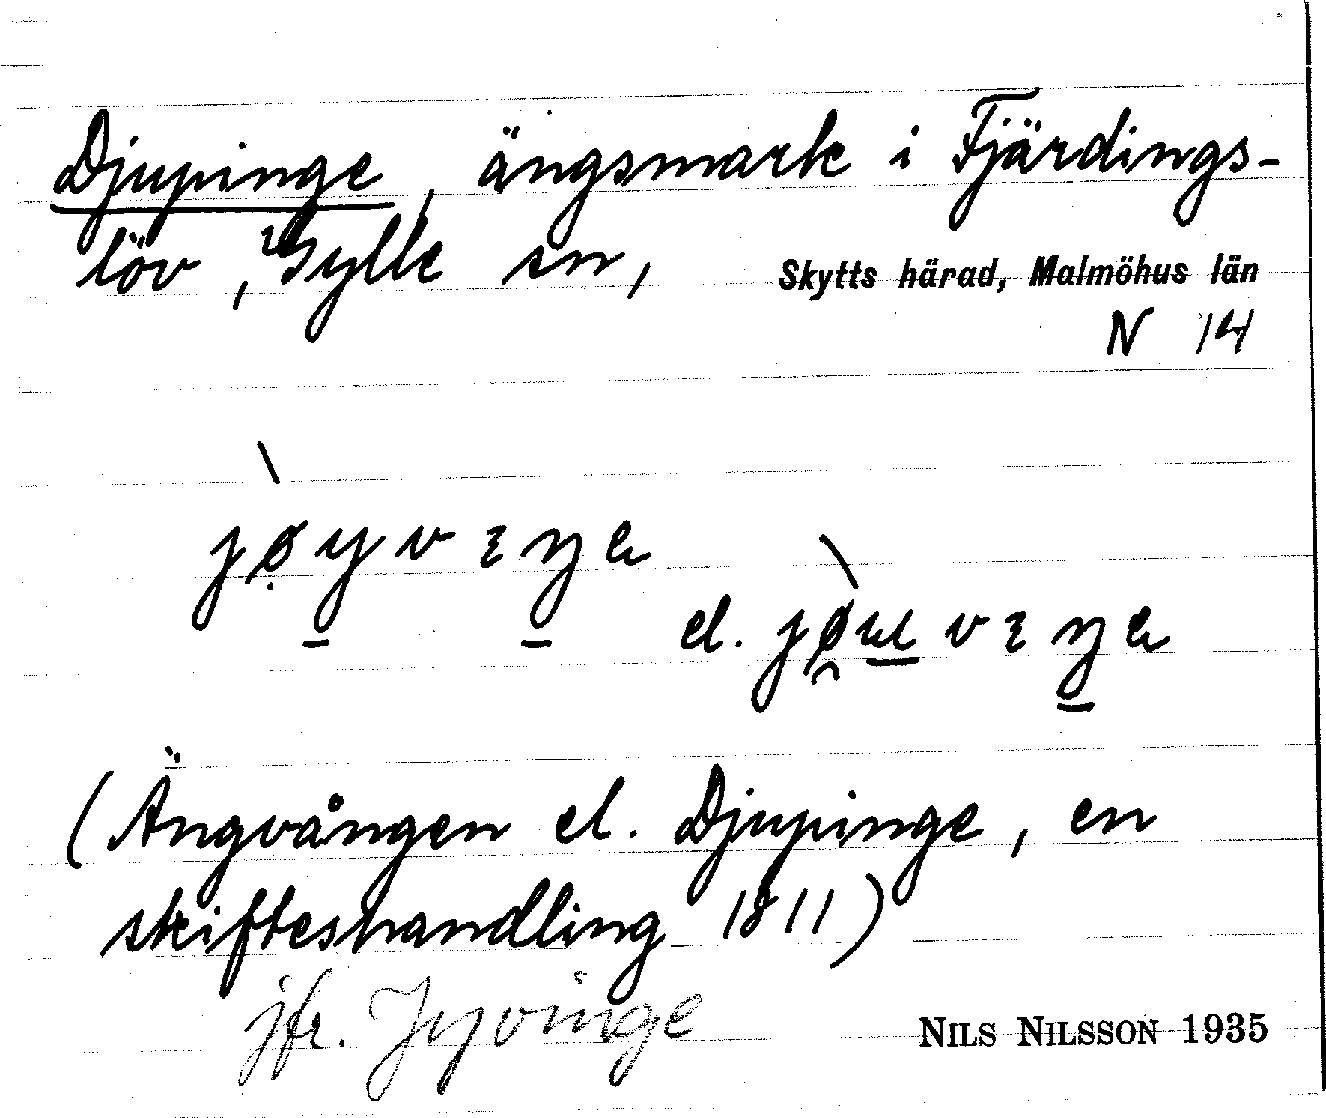 Djupinge, ängsmark i Fjärdings-
löv, Gylle sn, Skytts härad, Malmöhus län
N 14
el.
(Ängvången el. Djupinge, en
skifteshandling 1811)
jfr. Jyvinge
NILS NILSSON 1935